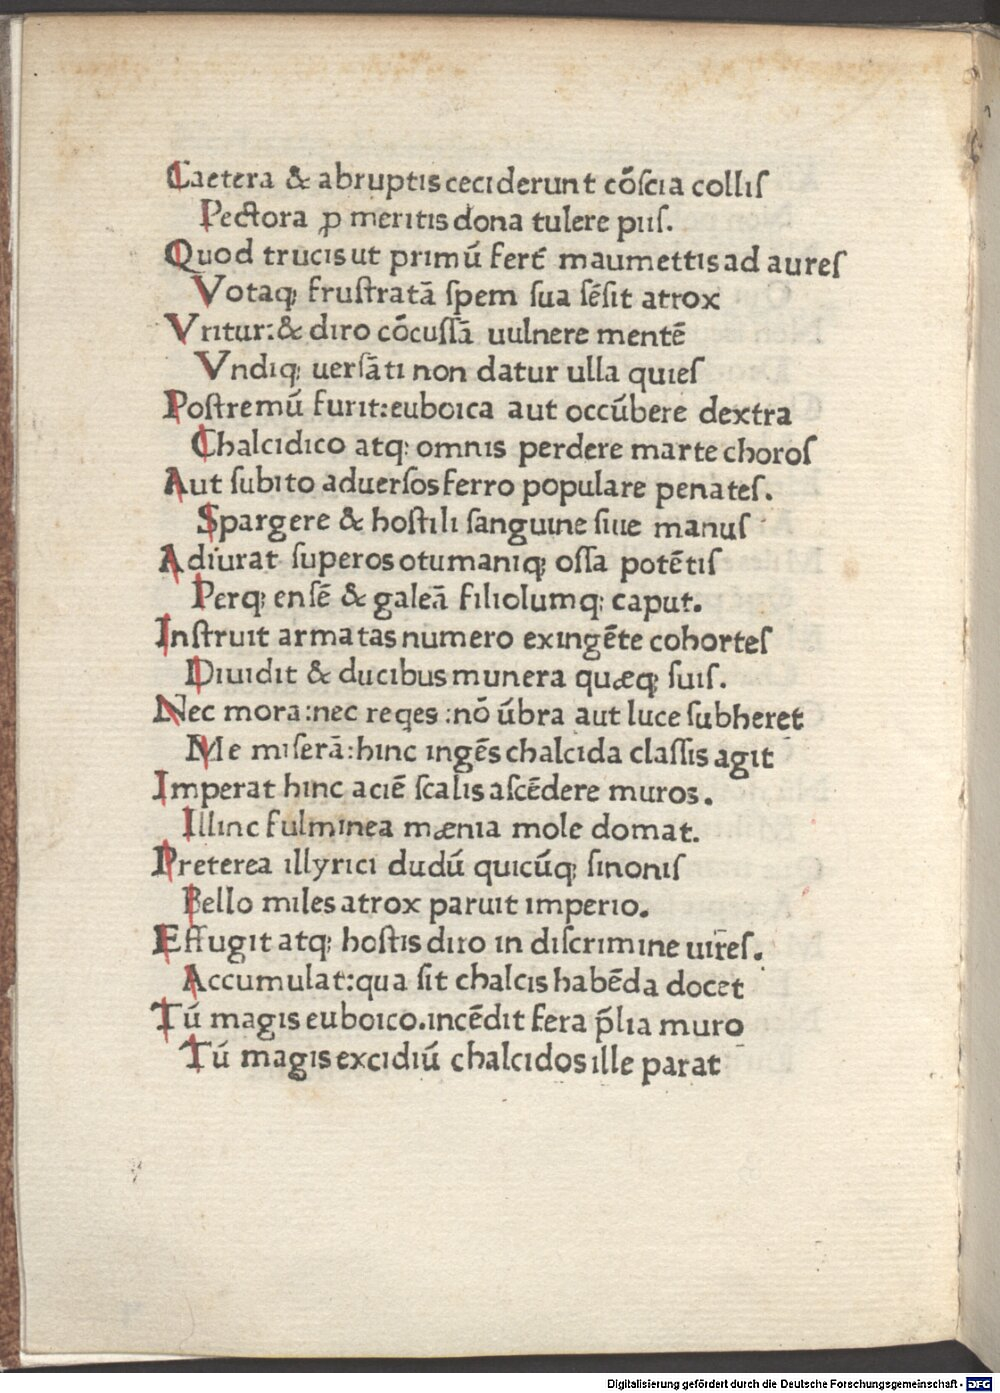 Caetera & abruptis ceciderunt cõſcia colliſ
Pectora ꝓ meritis dona tulere piiſ.
Quod trucis ut primũ fert̃ maumettis ad aureſ
Votaq; fruſtratã ſpem ſua ſẽſit atrox
Vritur:& diro cõcuſſã uulnere mentẽ
Vndiq; uerſãti non datur ulla quieſ
Poſtremũ furit:euboica aut occũbere dextra
Chalcidico atq; omnis perdere marte choroſ
Aut ſubito aduerſos ferro populare penateſ.
Spargere & hoſtili ſanguine ſiue manuſ
Adiurat ſuperos otumaniq; oſſa potẽtiſ
Perq; enſẽ & galeã filiolumq; caput.
Inſtruit armatas numero ex ingẽte cohorteſ
Diuidit & ducibus munera quæq; ſuiſ.
Nec mora:nec reqes :nõ ũbra aut luce ſubheret
Me miſerã:hinc ingẽs chalcida claſſis agit
Imperat hinc aciẽ ſcalis aſcẽdere muros.
Illinc fulminea mænia mole domat.
Preterea illyrici dudũ quicũq; ſinoniſ
Bello miles atrox paruit imperio.
Effugit atq; hoſtis diro in diſcrimine uireſ.
Accumulat:qua ſit chalcis habẽda docet
Tũ magis euboico.incẽdit fera p̃lia muro
Tũ magis excidiũ chalcidos ille parat
Digitalisierung gefördert durch die Deutsche Forschungsgemeinschaft - DFG